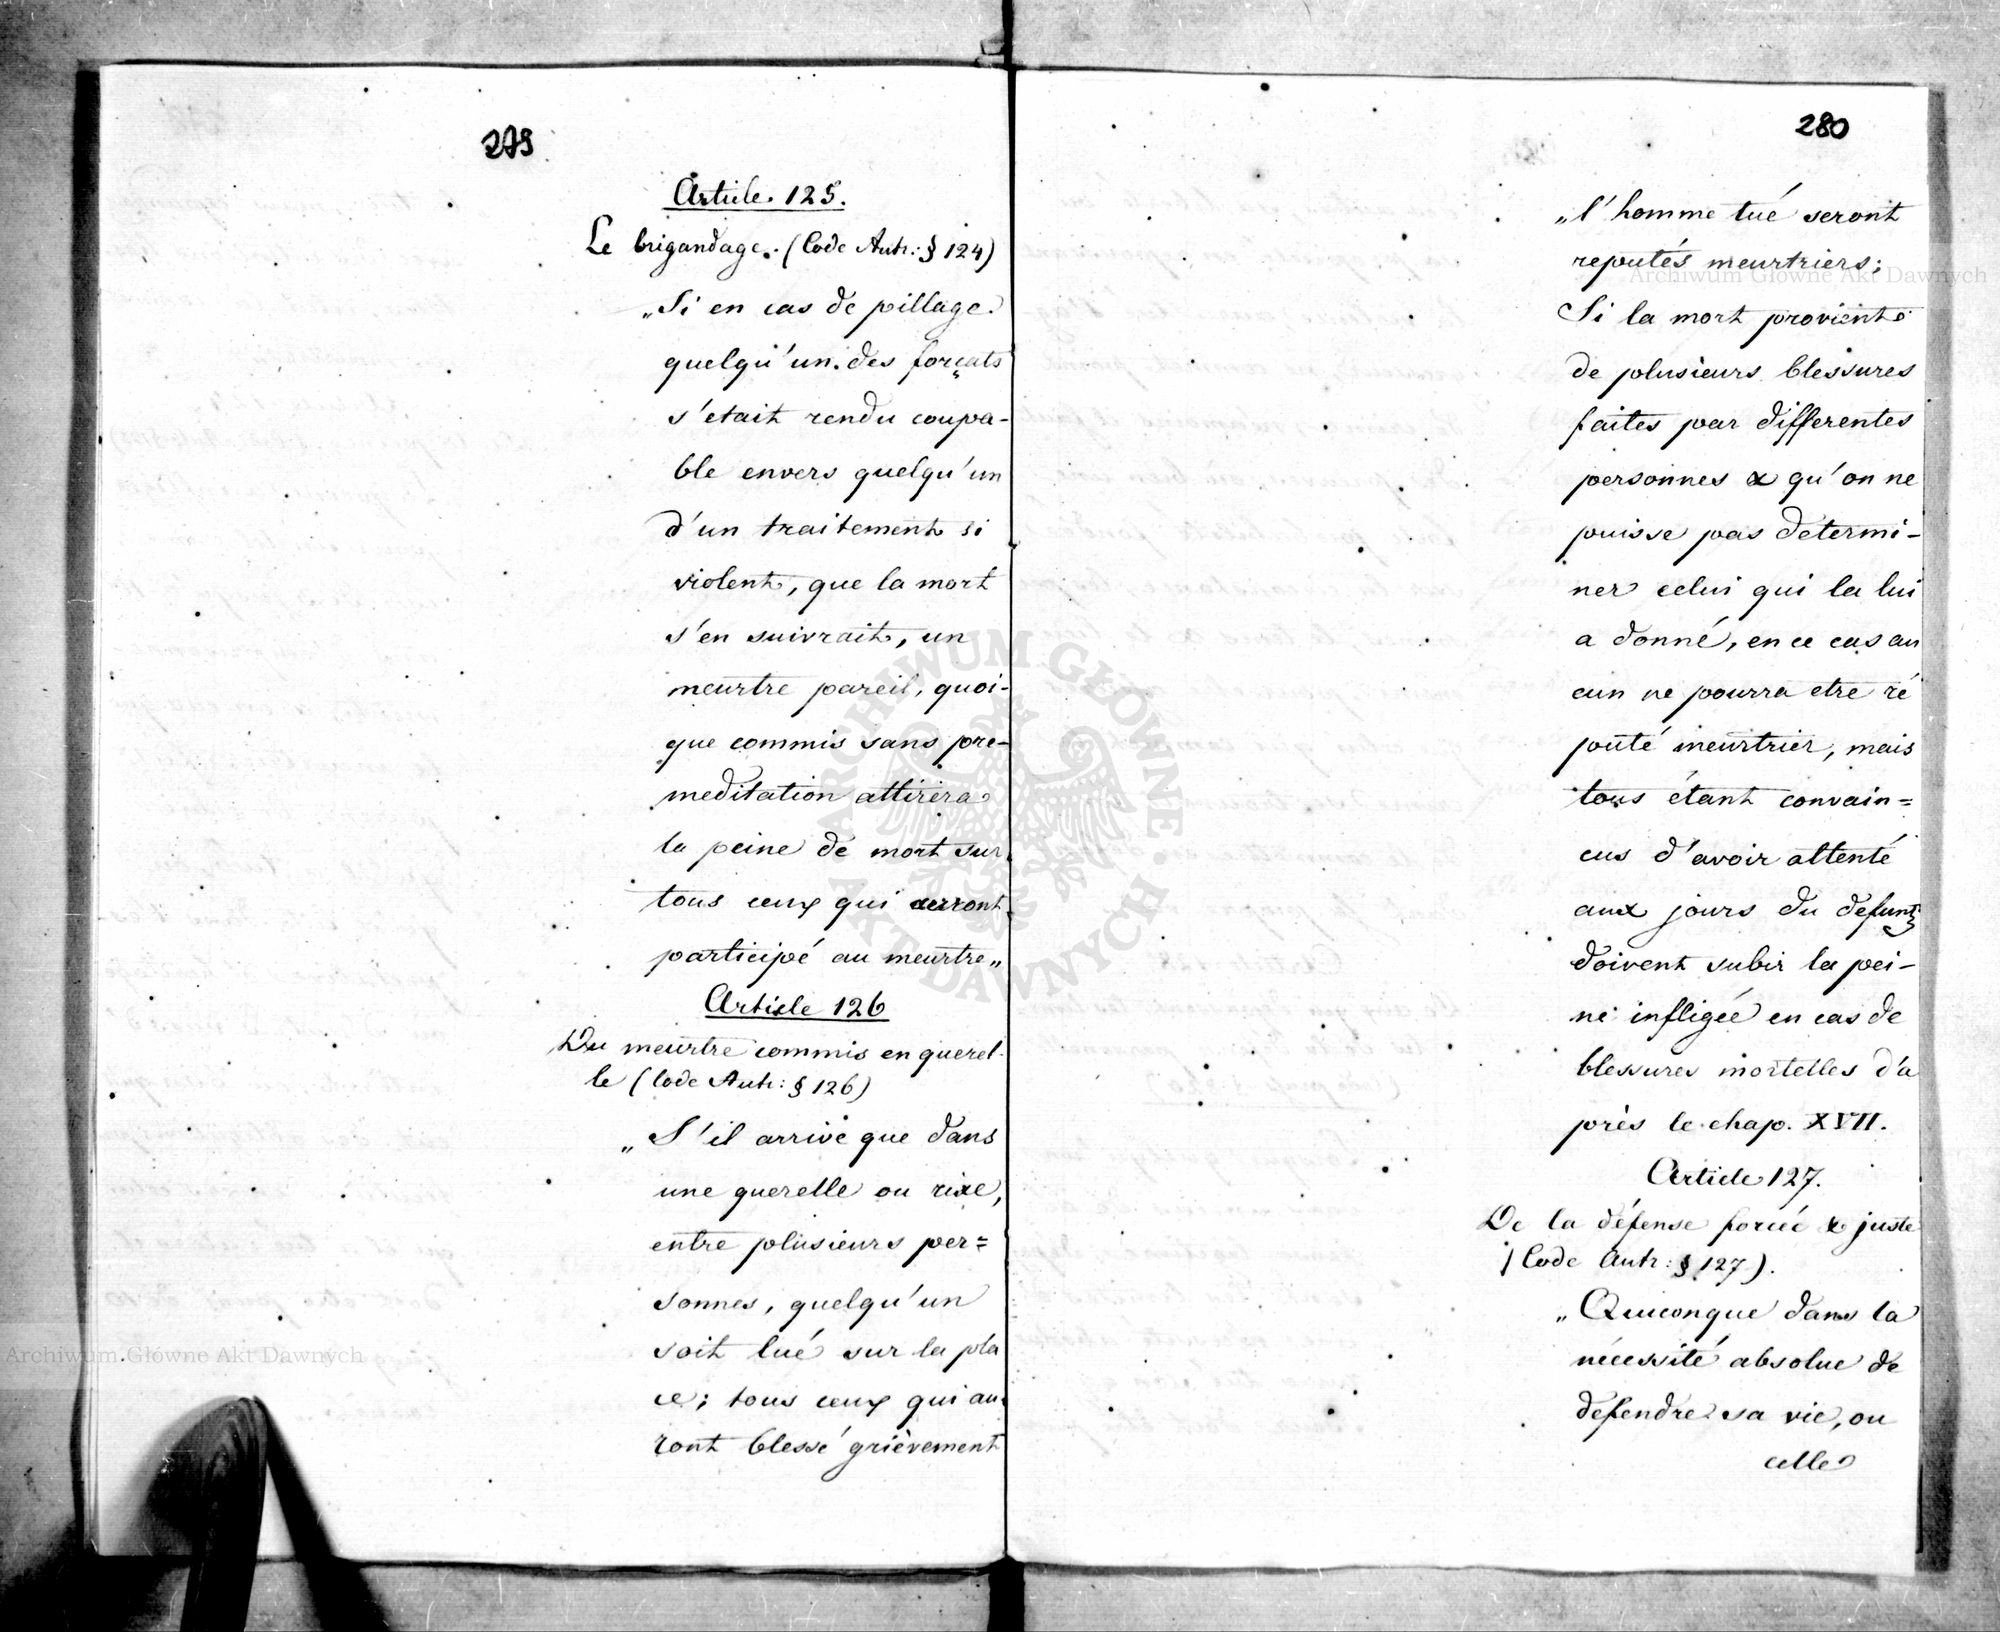 279
Article. 125.
Le brigandage. (Code Autr: § 124)
„Si en cas de pillage
quelqu'un des forçats
s'etait rendu coupa-
ble envers quelqu'un
d'un traitement si
violent, que la mort
s'en suivrait, un
meurtre pareil, quoi-
que commis sans pre-
meditation attirera
la peine de mort sur
tous ceux qui auront
participé au meurtre„
Article 126
Du meurtre commis en querel-
le (Code Autr: § 126)
„S'il arrive que dans
une querelle ou rixe,
entre plusieurs per=
sonnes, quelqu'un
soit tué sur la pla
ce; tous ceux qui au-
ront blessé grièvement
280
„l'homme tué seront
reputés meurtriers;
Si la mort provient
de plusieurs blessures
faites par differentes
personnes & qu'on ne
puisse pas determi-
ner celui qui la lui
a donné, en ce cas au
cun ne pourra etre ré
puté meurtrier, mais
tous étant convain=
cus d'avoir attenté
aux jours du defunt
doivent subir la pei-
ne infligée en cas de
blessures mortelles d'a
près le chap. XVII.
Article 127.
De la défense forcée & juste
(Code Autr: § 127).
„Quiconque dans la
nécessité absolue de
defendre sa vie, ou
celle
Archiwum Główne Akt Dawnych
Archiwum Główne Akt Dawnych
ARCHIWUM GŁÓWNE AKT DAWNYCH